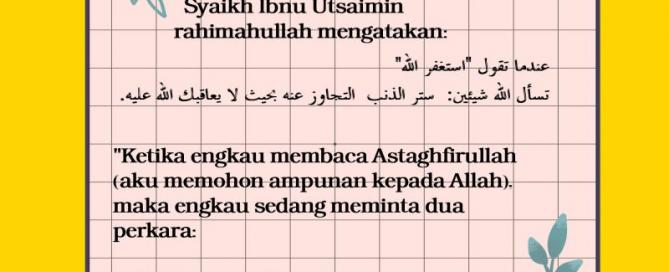 Syaikh Ibnu Utsaimin
rahimahullah mengatakan:
عندما تقول "استغفر الله"
تسأل الله شيئين: ستر الذنب التجاوز عنه بحيث لا يعاقبك الله عليه.
"Ketika engkau membaca Astaghfirullah
(aku memohon ampunan kepada Allah).
maka engkau sedang meminta dua
perkara: